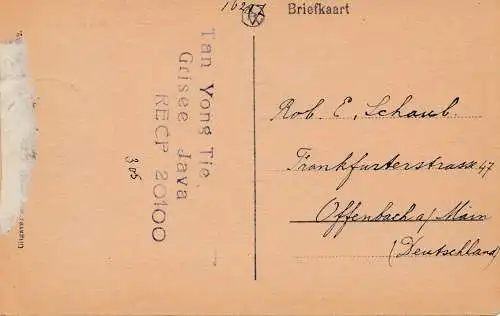 16217
Briefkaart
Tan Yong Tie,
Grisee Java
RECP 20100
305
Rob. E. Schaub.
Frankfurterstrasse 47
Offenbach a/ Main
(Deutschland)